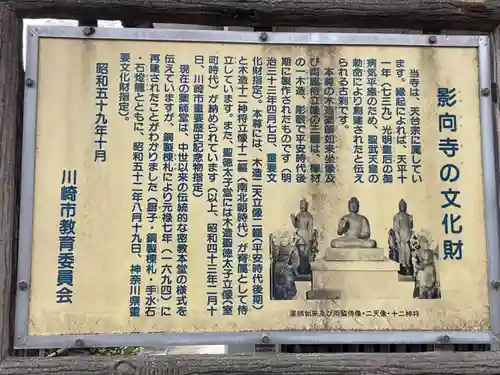 影向寺の文化財
当寺は、天台宗に属してい
ます。縁起によれば、天平十
一年（七三九）光明皇后の御
病気平癒のため、聖武天皇の
勅命により創建されたと伝え
られる古刹です。
本尊の木造薬師如来坐像及
び両脇侍立像の三軀は、欅材
の一木造、彫眼で平安時代後
期に製作されたものです（明
治三十三年四月七日、重要文
化財指定）。本尊には、木造二天立像二軀（平安時代後期）
と木造十二神将立像十二軀（南北朝時代）が本尊の眷属として侍
立しています。また、聖徳太子堂には木造聖徳太子立像（室
町時代）が納められています（以上、昭和四十三年二月十
日、川崎市重要歴史記念物指定）
現在の薬師堂は、中世以来の伝統的な密教本堂の様式を
伝えていますが、銅製棟札により元禄七年（一六九四）に
再建されたことがわかりました（厨子・銅製棟札・手水石
・石燈籠とともに、昭和五十二年八月十九日、神奈川県重
要文化財指定）。
昭和五十九年十月
川崎市教育委員会
薬師如来及び両脇侍像・二天像・十二神将